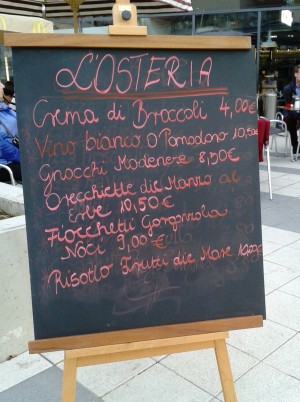 L'OSTERIA
Crema di Broccoli 4,00€
Vino bianco O Pomodoro 10,50
Gnocchi Modenese 8,50€
Orecchiette die Manzo al
Erbe 10,50€
Fiocchetti Gorgonzola
Noci 9,00€
Risotto Frutti die Mare